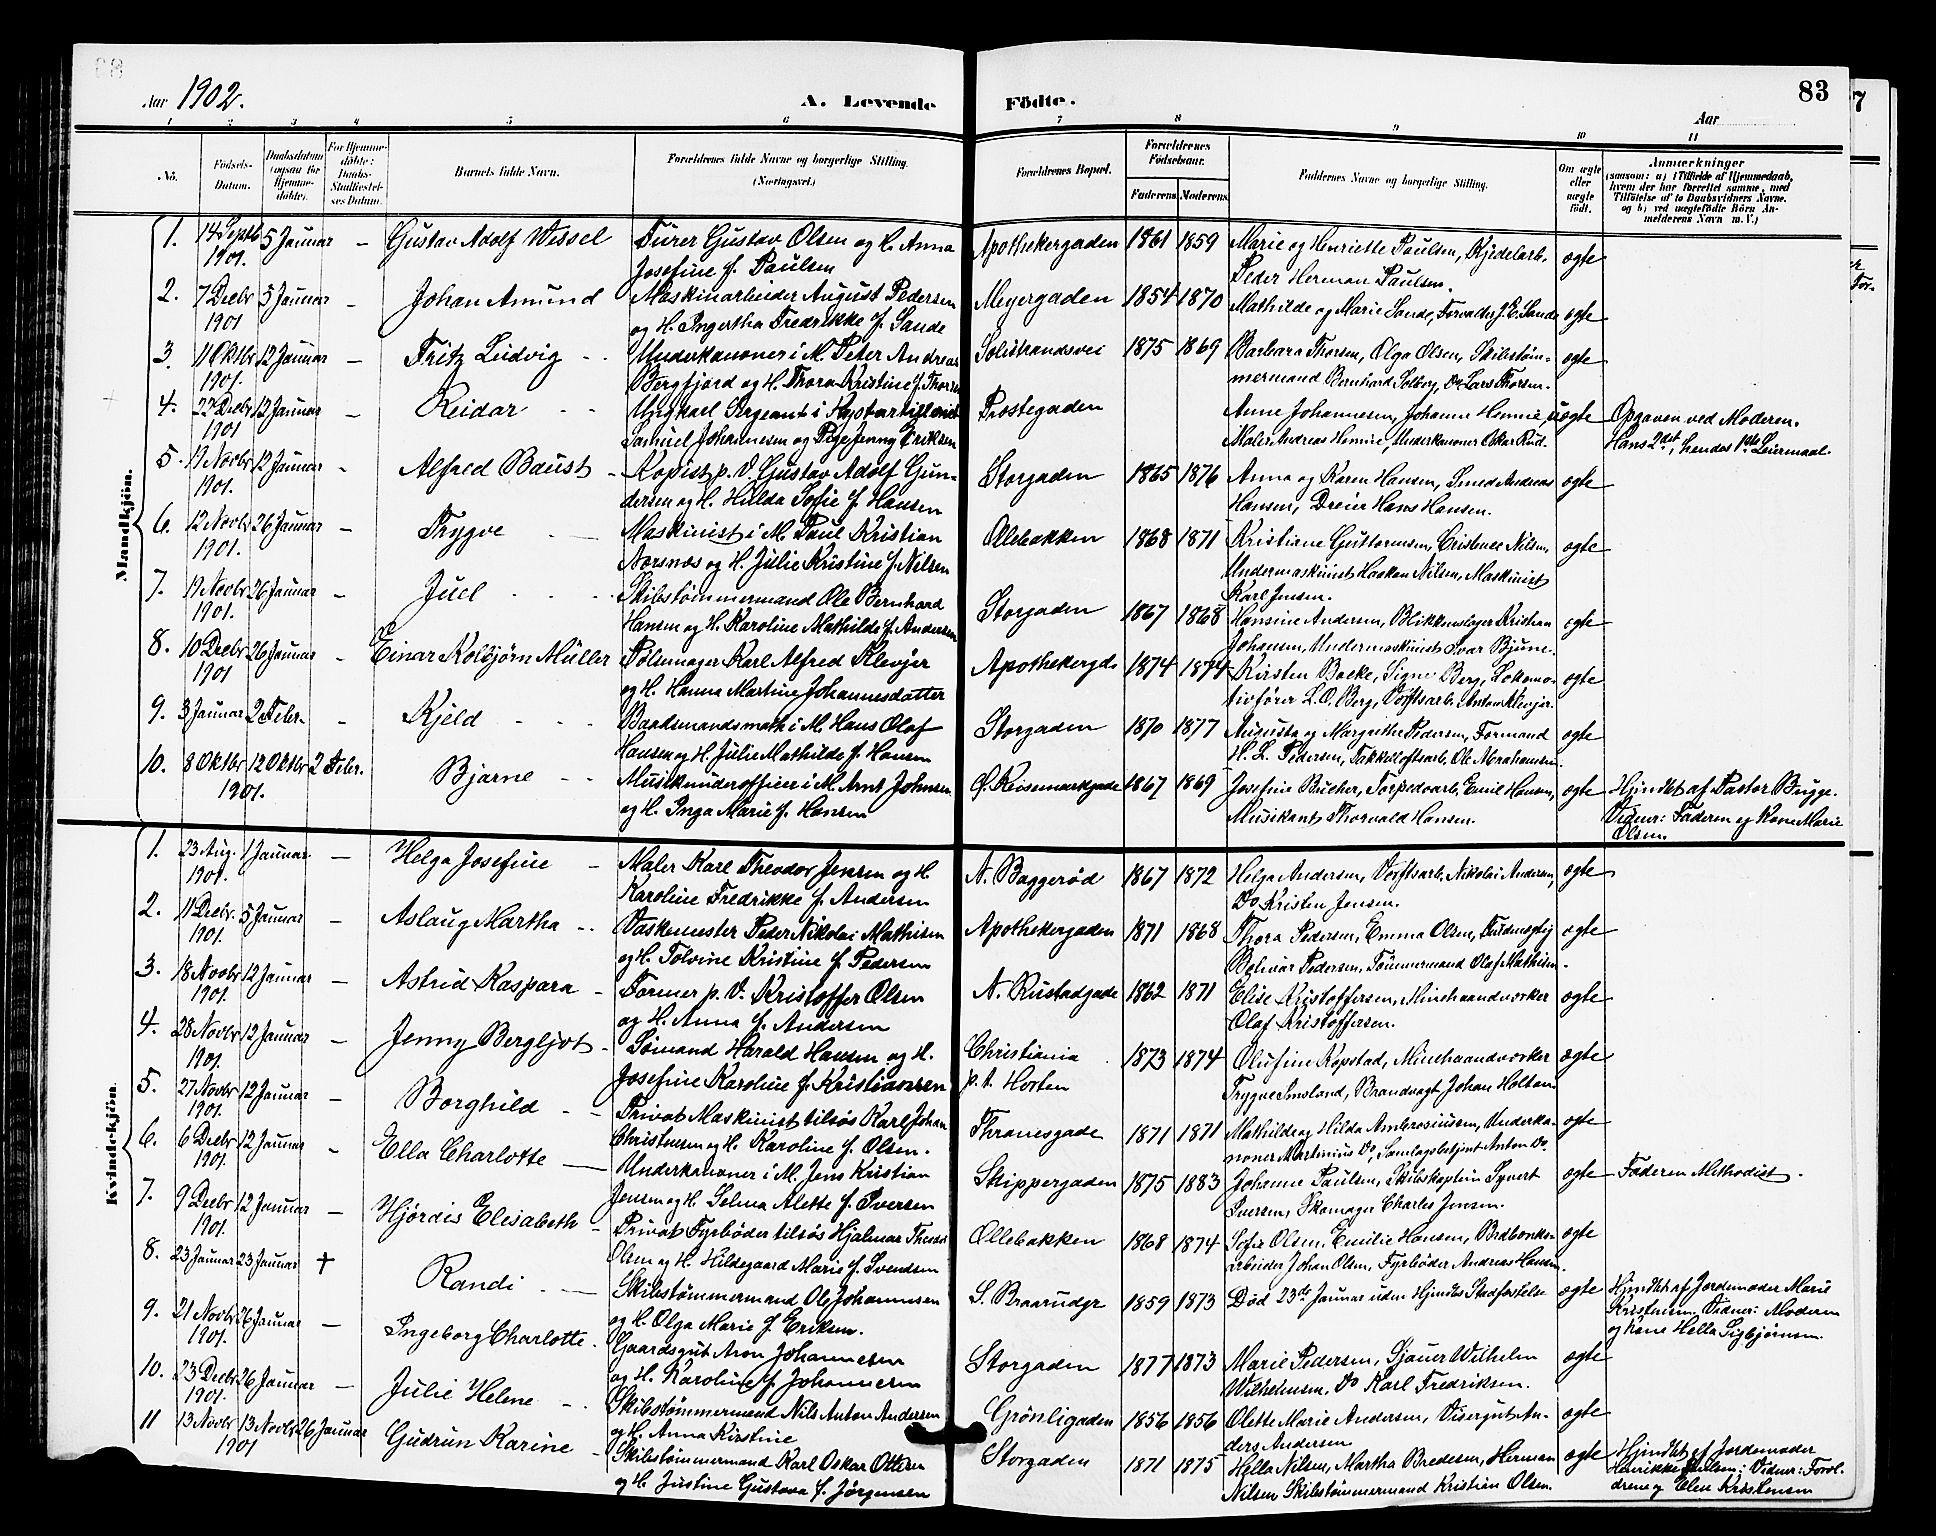 Aar 1902.
A. Levende Födte.
83
Aar
1 2 3 4 5 6 7 8 9 10 11
No.
Födsels-Datum.
Daabsdatum (ogsaa for Hjemmedöbte).
For Hjemmedöbte: Daabs-Stadfæstelses Datum.
Barnets fulde Navn.
Forældrenes fulde Navne og borgerlige Stilling. (Næringsvei.)
Forældrenes Bopæl.
Forældrenes Födselsaar.
Faderens. Moderens.
Faddernes Navne og borgerlige Stilling.
Om ægte eller uægte født.
Anmærkninger
(saasom: a) i Tilfælde af Hjemmedaab, hvem der har forrettet samme, med Tilföielse af to Daabsvidners Navne, og b) ved uægtefödte Börn Anmelderens Navn m. V.)
Mandkjön.
1. 14 Septb 1901. 5 Januar – Gustav Adolf Wessel Furer Gustav Olsen og H. Anna Josefine f. Paulsen Apothekergaden 1861 1859 Marie og Henriette Paulsen, Kjedelarb. Peder Herman Paulsen. ægte
2. 7 Decbr 1901 5 Januar – Johan Amund Maskinarbeider August Pedersen og H. Ingertha Fredrikke f. Sande Meyergaden 1854 1870 Mathilde og Marie Sande, Forvalter J. C. Sande ægte
3. 11 Oktbr 1901. 12 Januar – Fritz Ludvig Underkanoner i M. Peter Andreas Bergfjord og H. Thora Kristine f. Thorsen Solistrandsvei 1875 1869 Barbara Thorsen, Olga Olsen, Skibstømmermand Bernhard Solberg, Do Lars Thorsen. ægte
4. 22 Decbr 1901 12 Januar – Reidar Ugykael Sergeant i Kystartilleriet Samuel Johannesen og Pige Jenny Eriksen Prostegaden Anne Johannesen, Johanne Hennie, Maler Andreas Hennie, Underkanoner Oskar Rud. uægte Opgaven ved Moderen. Hans 2det, hendes 1ste Leiermaal.
5. 19 Novbr 1901. 12 Januar – Alfred Baust Kopist p. V. Gustav Adolf Gundersen og H. Hilda Sofie f. Hansen Storgaden 1865 1876 Anna og Karen Hansen, Smed Andreas Hansen, Dreier Hans Hansen. ægte
6. 12 Novbr 1901. 26 Januar – Trygve Maskinist i M. Paul Kristian Aarsnæs og H. Julie Kristine f. Nilsen Ollebakken 1868 1871 Kristiane Guttormsen, Cristense Nilsen, Undermaskinist Haaken Nilsen, Maskinist Karl Jensen. ægte
7. 19 Novbr 1901. 26 Januar – Juel Skibstømmermand Ole Bernhard Hansen og H. Karoline Mathilde f. Andersen Storgaden 1867 1868 Hansine Andersen, Blikkenslager Kristian Johansen, Undermaskinist Ivar Bjune. ægte
8. 10 Decbr 1901 26 Januar – Einar Kolbjørn Müller Pølsemager Karl Alfred Klevjer og H. Hanna Martine Johannesdatter Apothekergd. 1874 1874 Kirsten Bakke, Signe Berg, Lokomotivfører L. O. Berg, Værftsarb. Anton Klevjer. ægte
9. 3 Januar 2 Febr. – Kjeld Baadsmandsmath i M. Hans Olaf Hansen og H. Julie Mathilde f. Hansen Storgaden 1870 1877 Augusta og Margrethe Pedersen, Formand H. L. Pedersen, Takkelloftsarb. Ole Abrahamsen. ægte
10. 8 Oktbr 12 Oktbr 1901. 2 Febr. Bjarne Musikunderofficer i M. Arnt Johnsen og H. Inga Marie f. Hansen Ø. Keisemarkgade 1867 1869 Josefine Bucher, Torpedoarb. Emil Hansen, Musikant Thorvald Hansen. ægte Hjemdbt af Pastor Bugge. Vidner: Faderen og Kone Marie Olsen.
Kvindekjön.
1. 23 Aug. 1901. 1 Januar – Helga Josefine Maler Karl Theodor Jensen og H. Karoline Fredrikke f. Andersen N. Baggerød 1867 1872 Helga Andersen, Værftsarb. Nikolai Andersen, Do Kristen Jensen. ægte
2. 11 Decbr. 1901. 5 Januar – Aslaug Martha Vaskemester Peder Nikolai Mathisen og H. Tolvine Kristine f. Pedersen Apothekergaden 1871 1868 Thora Pedersen, Emma Olsen, Bolivar Pedersen, Tømmermand Olaf Mathisen. ægte
3. 18 Novbr 1901. 12 Januar – Astrid Kaspara Former p. V. Kristoffer Olsen og H. Anna f. Andersen N. Rustadgade 1862 1871 Elise Kristoffersen, Minehaandverker Olaf Kristoffersen. ægte
4. 28 Novbr 1901. 12 Januar – Jenny Bergljot Sømand Harald Hansen og H. Josefine Karoline f. Kristiansen Christiania p. t. Horten 1873 1874 Olufine Kopstad, Minehaandverker Trygve Imsland, Brandvagt Johan Holtan. ægte
5. 27 Novbr 1901. 12 Januar – Borghild Privat Maskinist tilsøs Karl Johan Christensen og H. Karoline f. Olsen. Thranesgade 1871 1871 Mathilde og Hilda Ambrosiussen, Underkanoner Martinius Do, Samlagsbetjent Anton Do. ægte
6. 6 Decbr 1901. 12 Januar – Ella Charlotte Underkanoner i M. Jens Kristian Jensen og H. Selma Alette f. Iversen Skippergaden 1875 1883 Johanne Paulsen, Skibskaptein Syvert Iversen, Skomager Charles Jensen. ægte Faderen Methodist.
7. 9 Decbr 1901. 12 Januar – Hjördis Elisabeth Privat Fyrbøder tilsøs Hjalmar Olsen og H. Hildegaard Marie f. Svendsen Ollebakken 1868 1874 Sofie Olsen, Emilie Hansen, arbeider Johan Olsen, Fyrbøder Andreas Hansen. ægte
8. 23 Januar 23 Januar † Randi Skibstømmermand Ole Johannesen og H. Olga Marie f. Eriksen. S. Braarudgt 1859 1873 Død 23de Januar uden Hjmdbs Stadfæstelse ægte Hjmdbt af Jordemoder Marie Kristensen, Vidner: Moderen og Kone Hella Sigbjørnsen.
9. 21 Novbr 1901. 26 Januar – Ingeborg Charlotte. Gaardsgut Aron Johannesen og H. Karoline f. Johannesen Storgaden 1877 1873 Marie Pedersen, Sjauer Wilhelm Wilhelmsen, Do Karl Fredriksen. ægte
10. 23 Decbr 1901. 26 Januar – Julie Helene Skibstømmermand Nils Anton Andersen og H. Anna Kirstine Grönligaden 1856 1856 Olette Marie Andersen, Visergut Anders Andersen ægte
11 13 Novbr 13 Novbr 1901 26 Januar Gudrun Karine Skibstømmermand Karl Oskar Ottersen og H. Justine Gustava f. Jørgensen Storgaden 1871 1875 Hella Nilsen, Martha Bredesen, Herman Nilsen Skibstømmermand Kristian Olsen. ægte Hjemdbt af Jordemoder Henrikke Nielsen; Vidner: Forældrene og Elen Kristensen